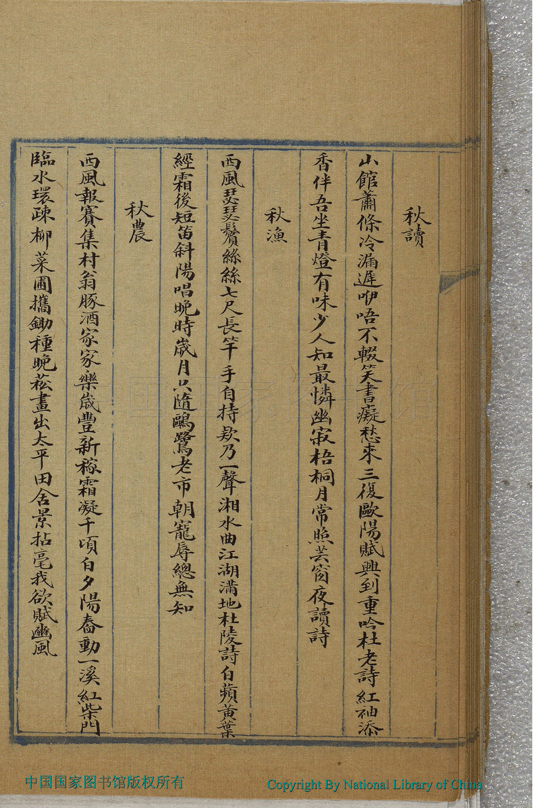 秋讀
小館蕭條冷漏遲咿唔不輟笑書癡愁來三復歐陽賦興到重吟杜老詩紅袖添
香伴吾坐青燈有味少人知最憐幽寂梧桐月常照芸窗夜讀詩
秋漁
西風瑟瑟鬢絲絲七尺長竿手自持欸乃一聲湘水曲江湖滿地杜陵詩白蘋黃葉
經霜後短笛斜陽唱晚時歲月只隨鷗鷺老市朝寵辱總無知
秋農
西風報賽集村翁豚酒家家樂歲豐新稼霜凝千頃白夕陽舂動一溪紅柴門
臨水環疎柳菜圃攜鋤種晚菘畫出太平田舍景拈毫我欲賦豳風
中国国家图书馆版权所有
Copyright By National Library of China